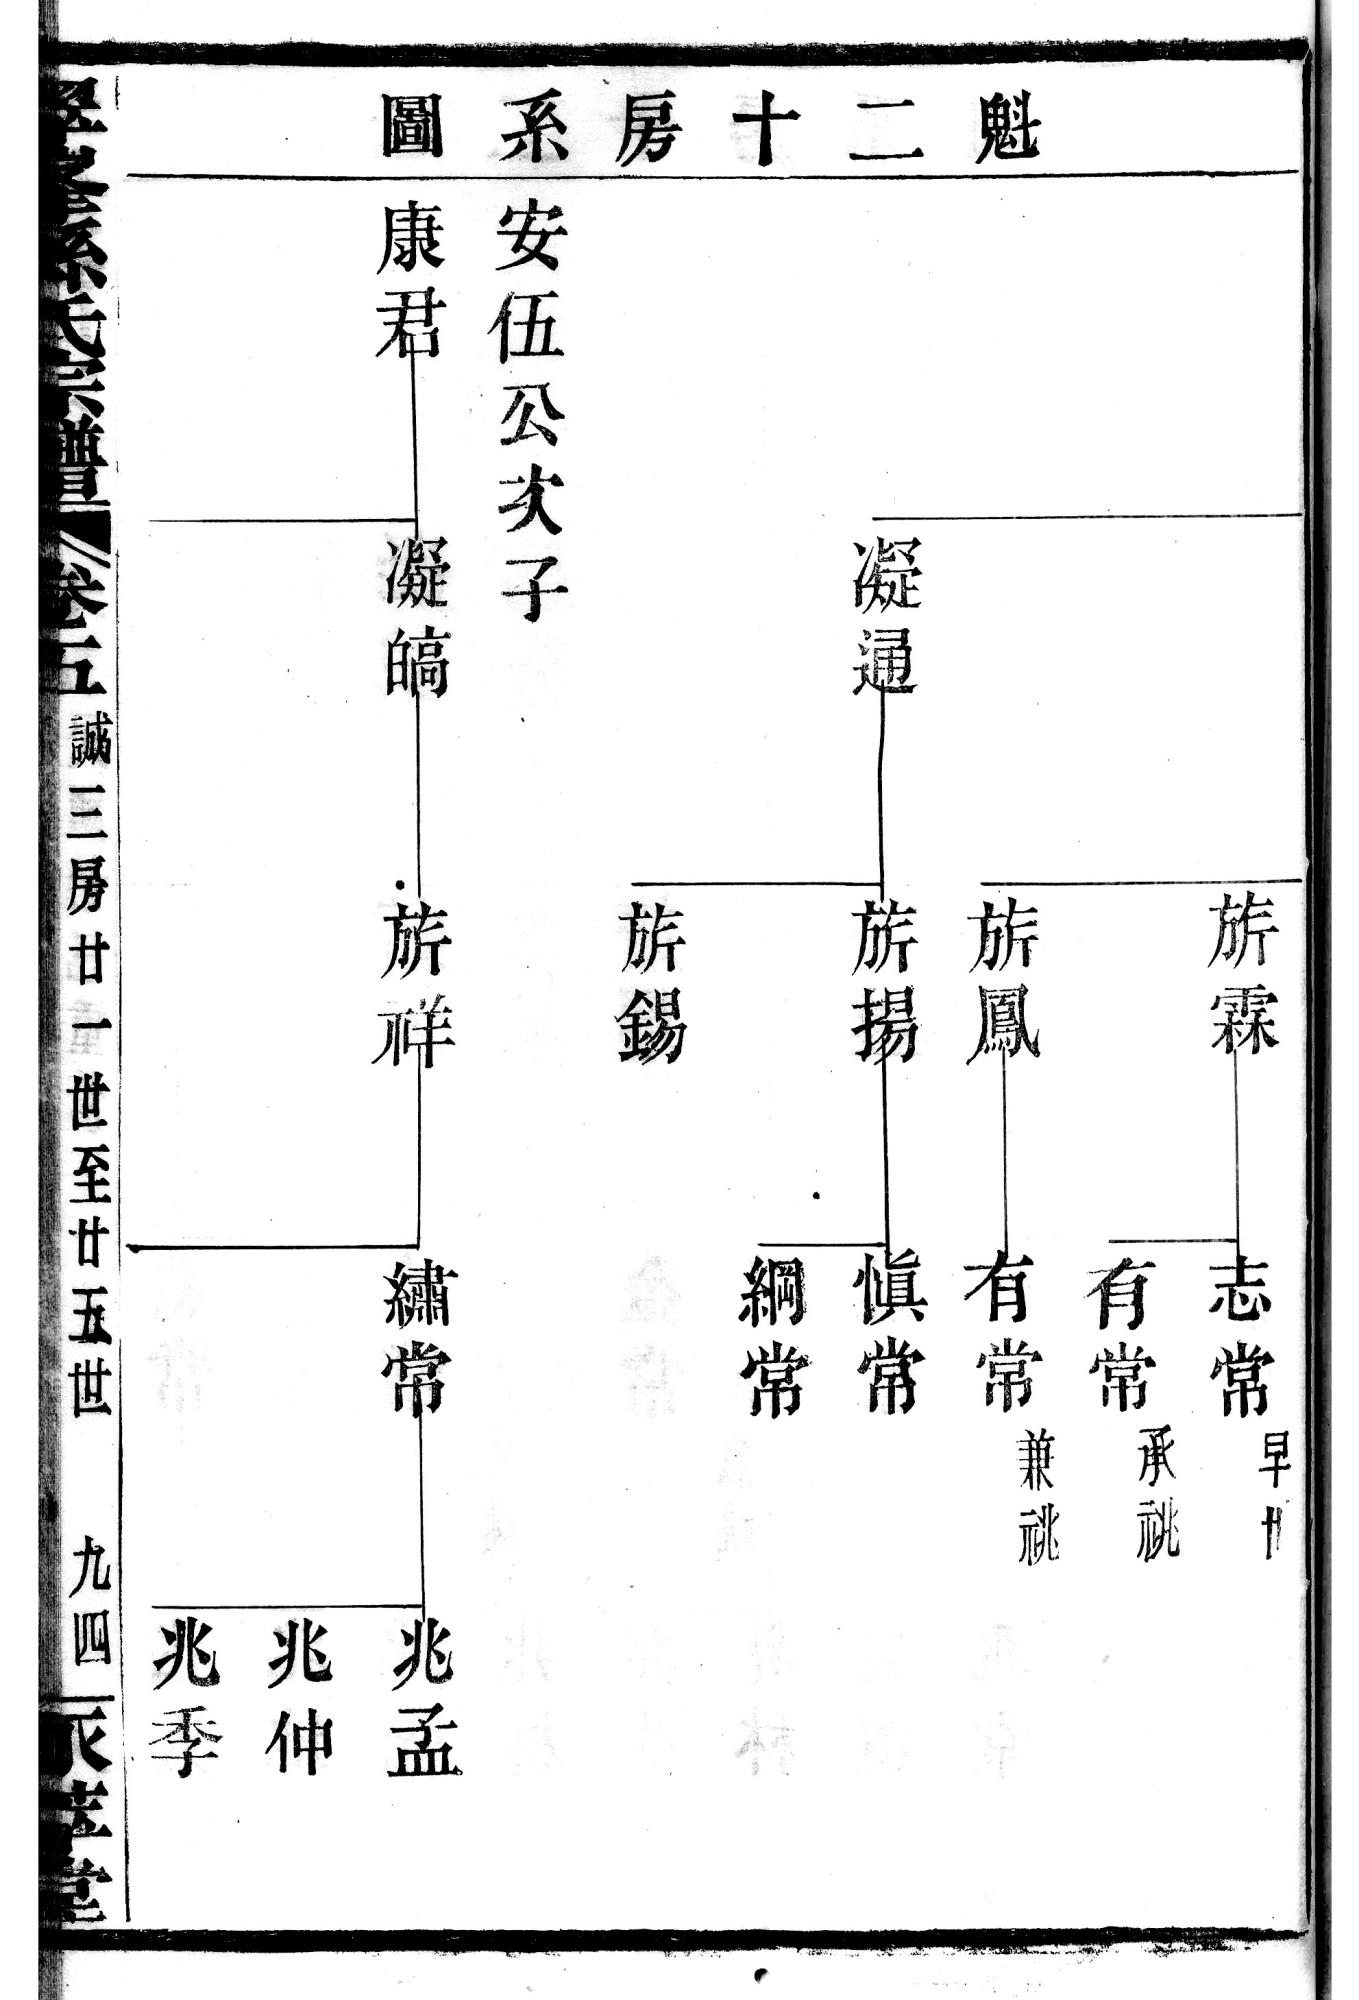 魁二十房系圖
安伍公次子
康君
凝通
凝皜
旂霖
旂鳳
旂揚
旂錫
旂祥
志常
早卄
有常
承祧
有常
兼祧
愼常
綱常
繡常
兆孟
兆仲
兆季
孫氏宗譜
卷五
誠三房廿一世至廿五世
九四
堂